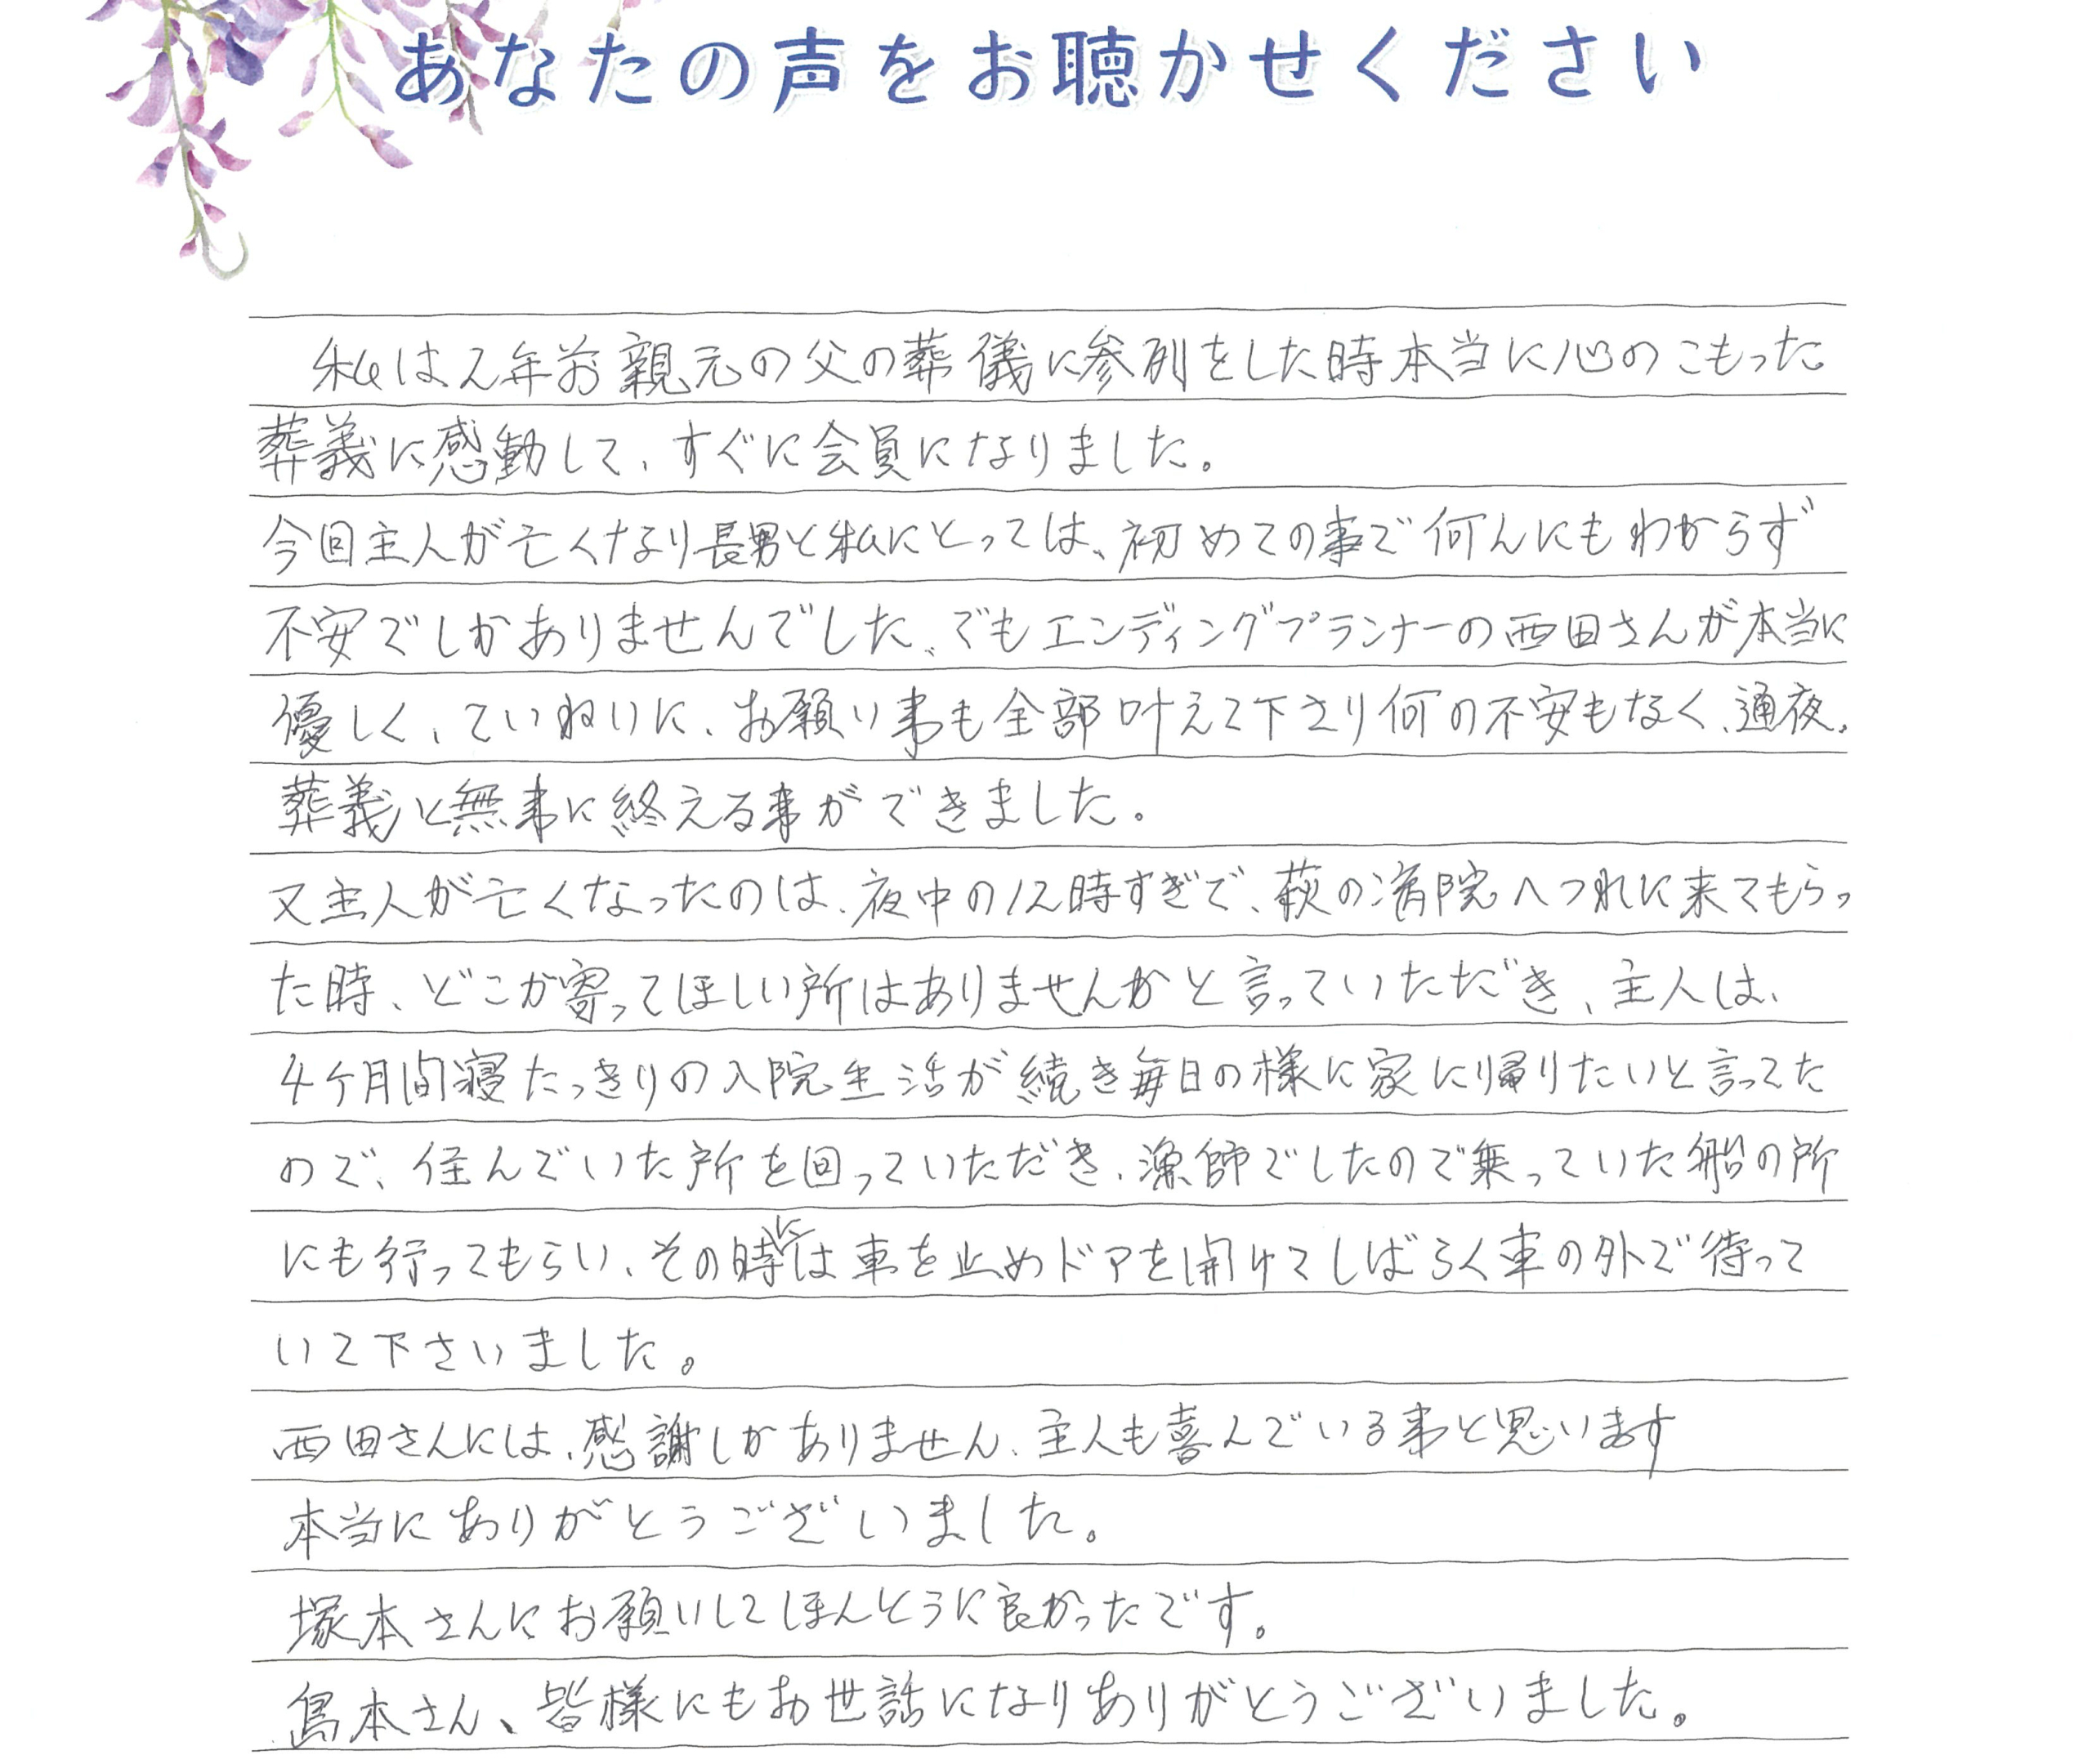 あなたの声をお聴かせください
私は2年前親元の父の葬儀に参列をした時本当に心のこもった
葬義に感動して、すぐに会員になりました。
今回主人が亡くなり長男と私にとっては、初めての事で何んにもわからず
不安でしかありませんでした、でもエンディングプランナーの西田さんが本当に
優しく、ていねいに、お願い事も全部叶えて下さり何の不安もなく、通夜、
葬義と無事に終える事ができました。
又主人が亡くなったのは、夜中の12時すぎで、萩の病院へつれに来てもらっ
た時、どこか寄ってほしい所はありませんかと言っていただき、主人は、
4ケ月間寝たっきりの入院生活が続き毎日の様に家に帰りたいと言ってた
ので、住んでいた所を回っていただき、漁師でしたので乗っていた船の所
にも行ってもらい、その時には車を止めドアを開けてしばらく車の外で待って
いて下さいました。
西田さんには、感謝しかありません、主人も喜んでいる事と思います
本当にありがとうございました。
塚本さんにお願いしてほんとうに良かったです。
島本さん、皆様にもお世話になりありがとうございました。